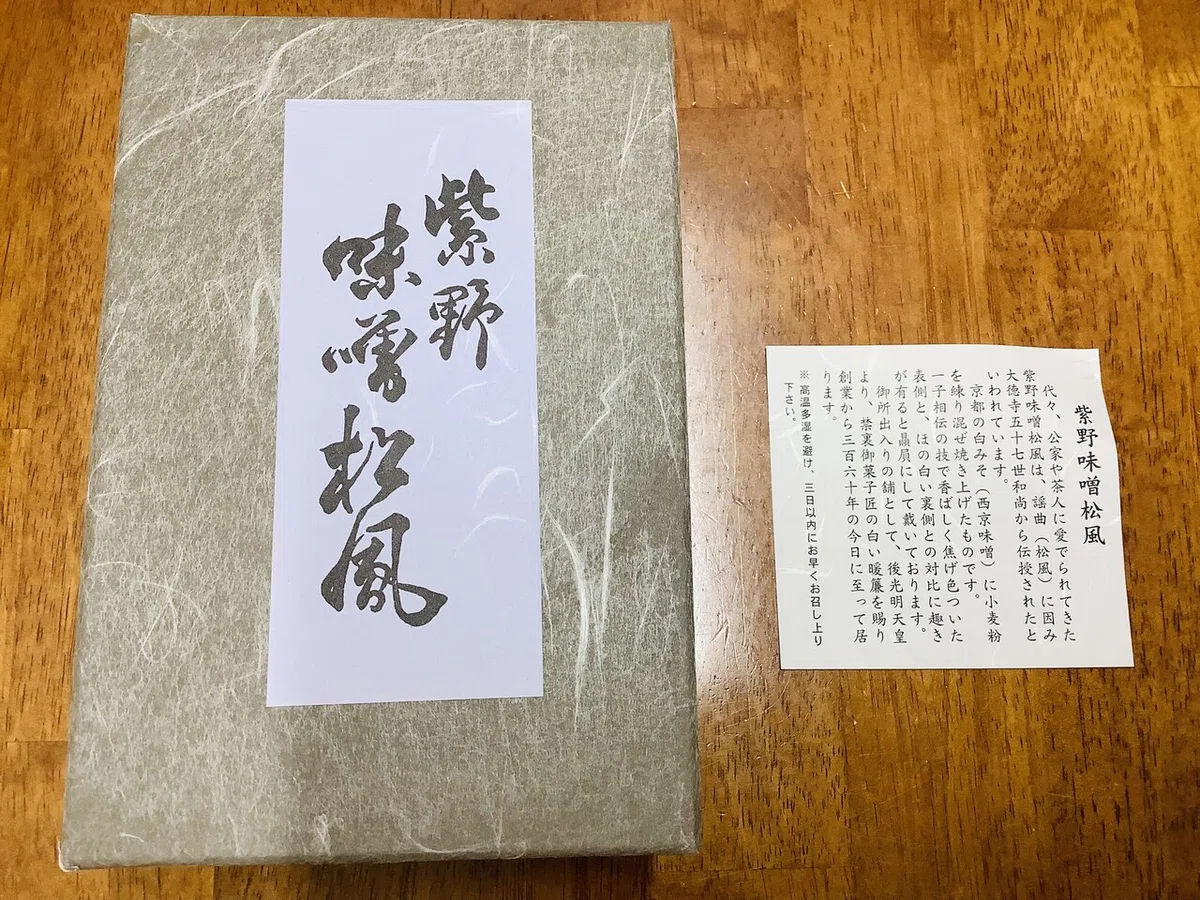 紫野
味噌松風
紫野味噌松風
代々、公家や茶人に愛でられてきた
紫野味噌松風は、謡曲（松風）に因み
大徳寺五十七世和尚から伝授されたと
いわれています。
京都の白みそ（西京味噌）に小麦粉
を練り混ぜ焼き上げたものです。
一子相伝の技で香ばしく焦げ色ついた
表側と、ほの白い裏側との対比に趣き
が有ると贔屓にして戴いております。
御所出入りの舗として、後光明天皇
より、禁裏御菓子匠の白い暖簾を賜り
創業から三百六十年の今日に至って居
ります。
※高温多湿を避け、三日以内にお早くお召し上り
下さい。